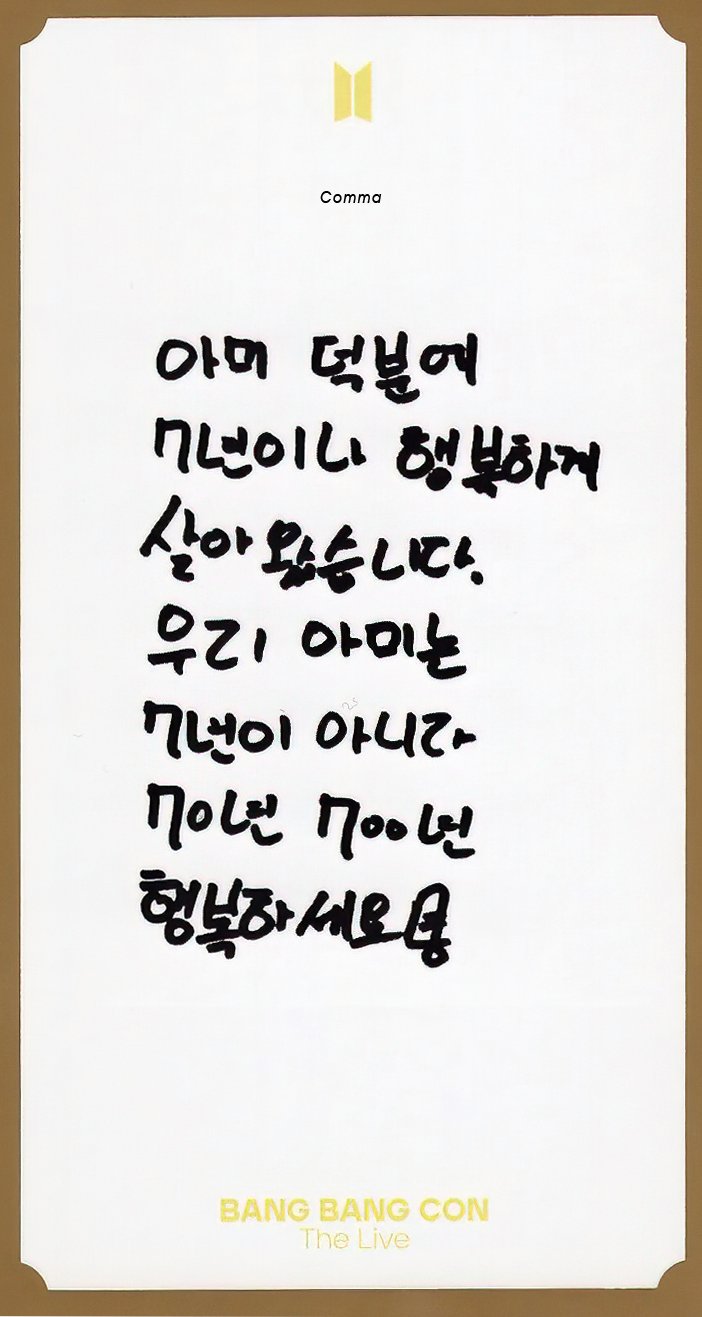 Comma
아미 덕분에
7년이나 행복하게
살아왔습니다.
우리 아미는
7년이 아니라
70년 700년
행복하세요
BANG BANG CON
The Live